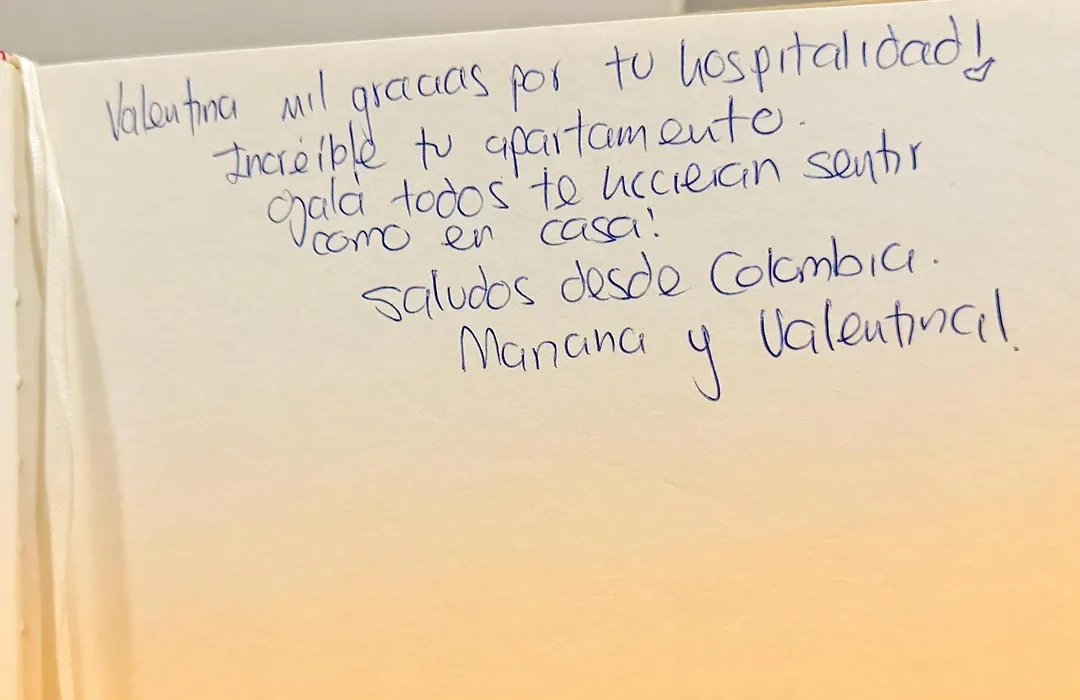 Valentina mil gracias por tu hospitalidad!
Increíble tu apartamento.
ojalá todos te hicieran sentir
como en casa!
Saludos desde Colombia.
Mariana y Valentina!